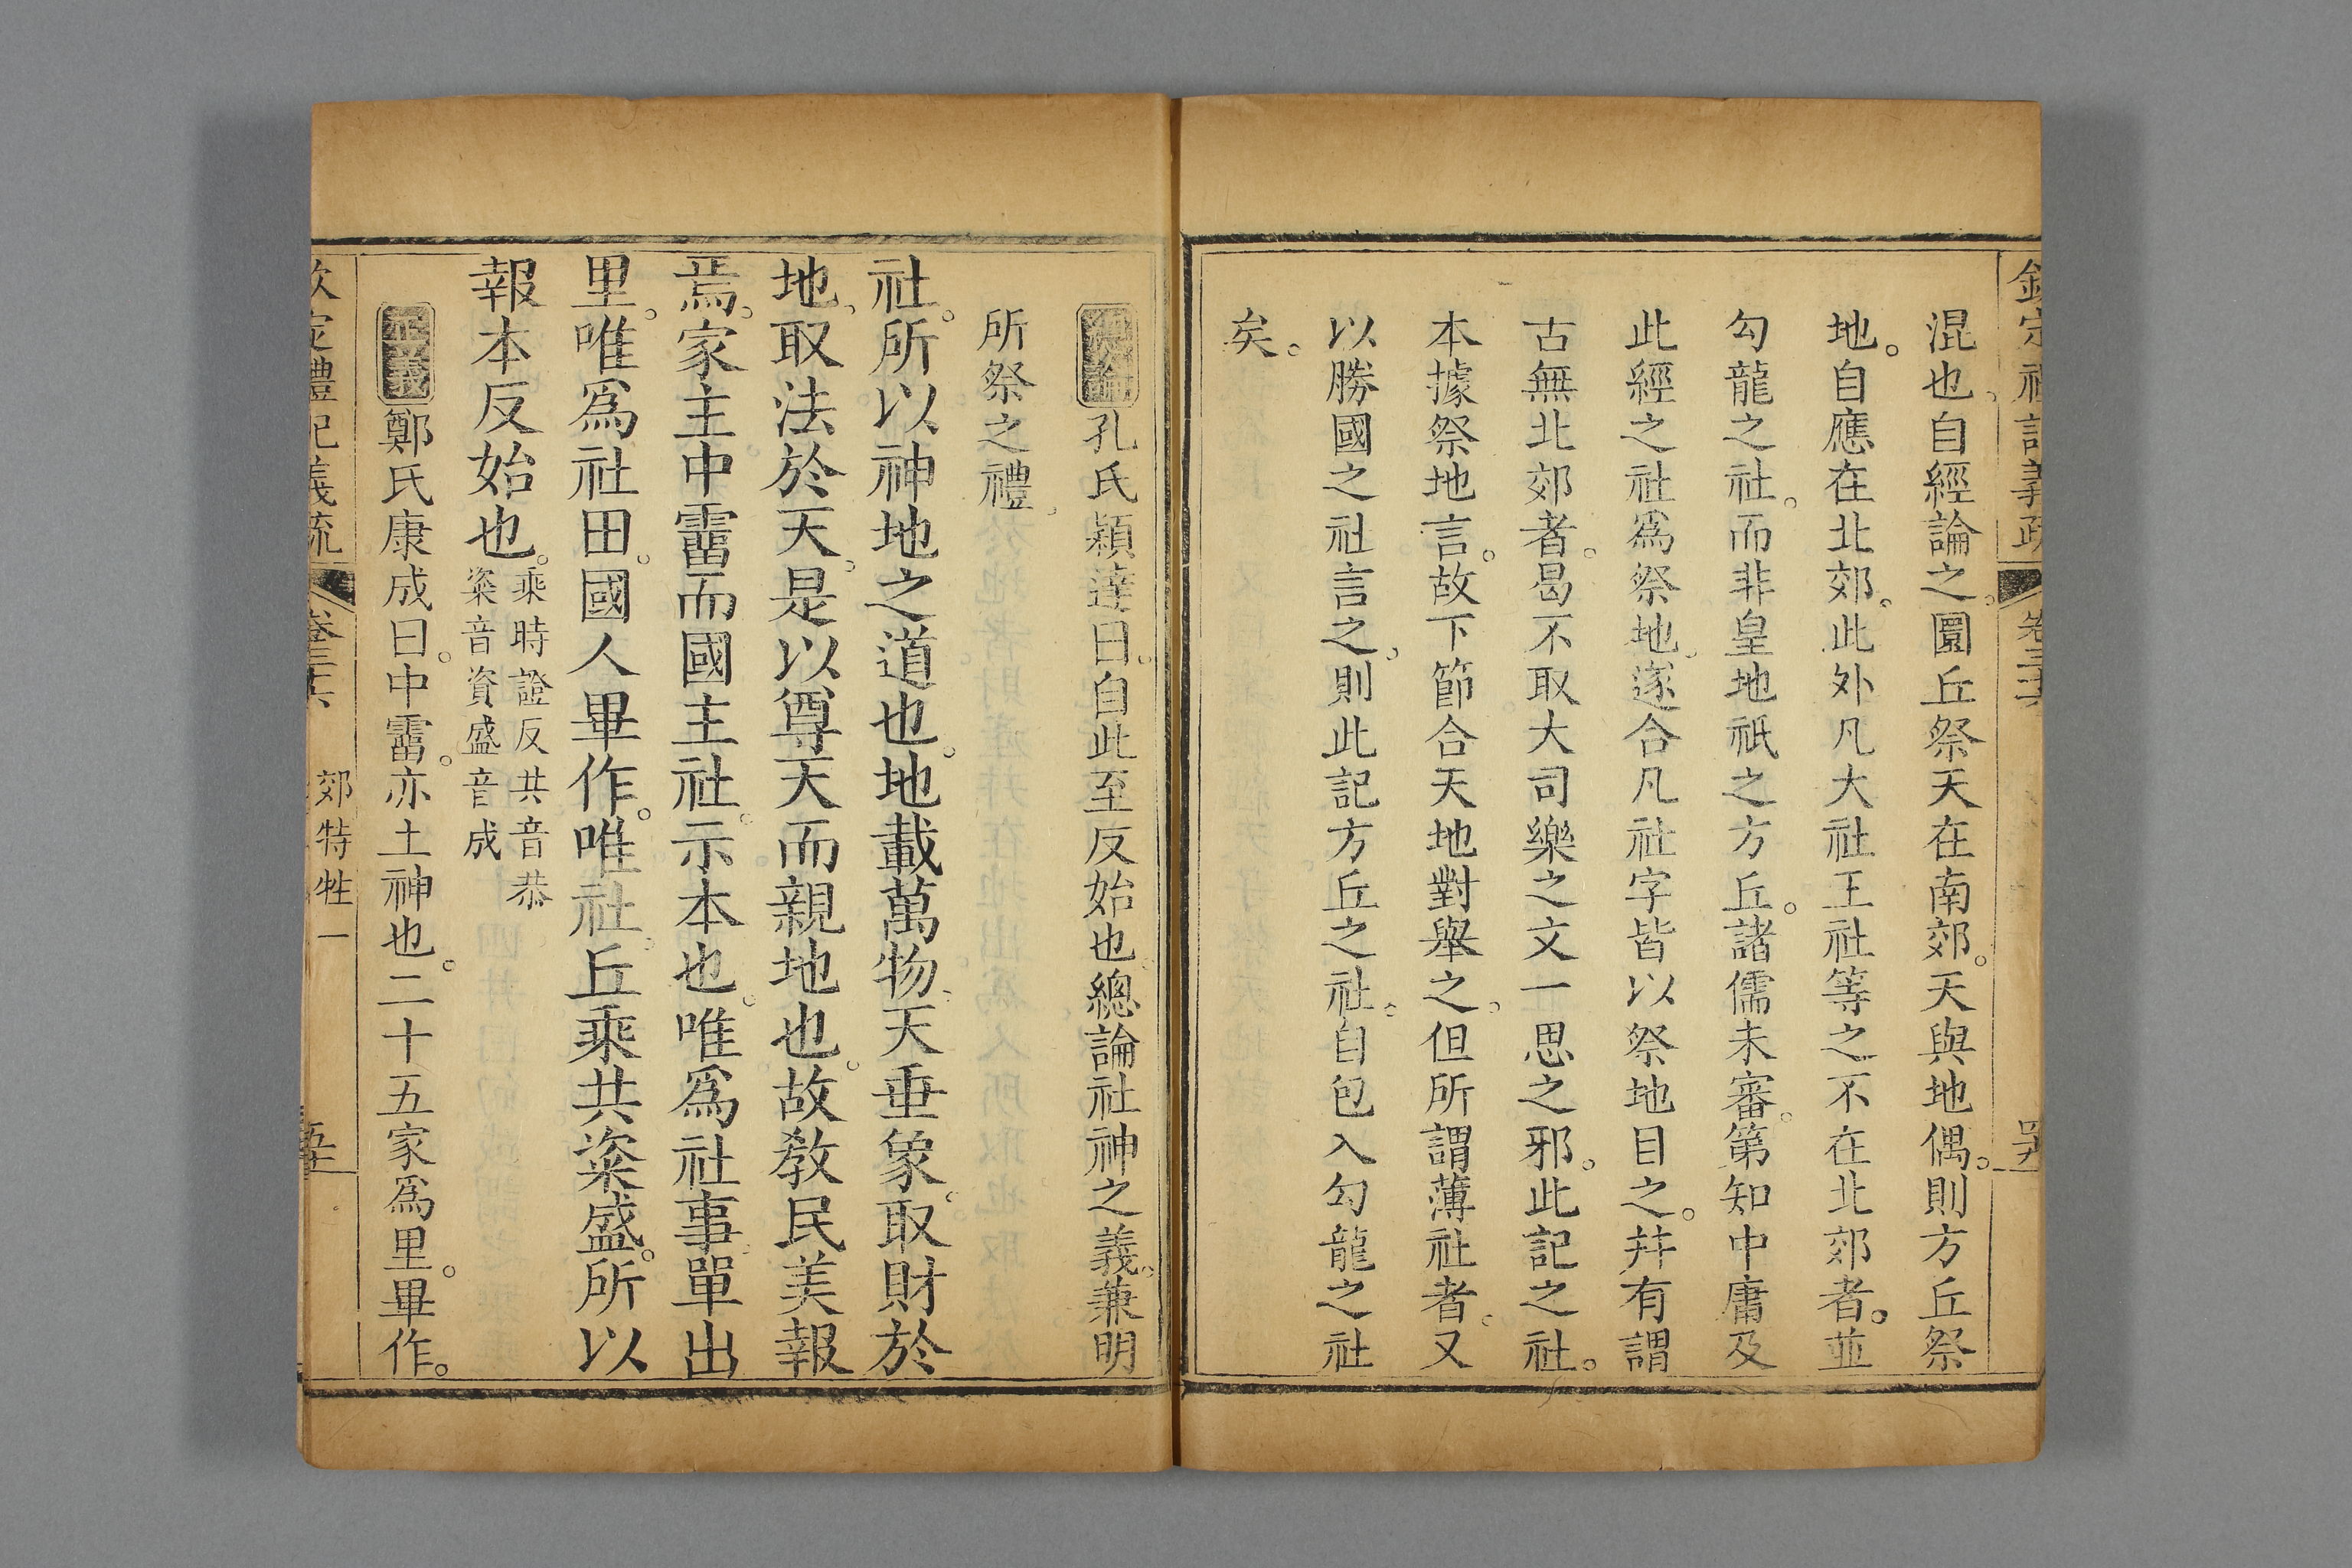 欽定禮記義疏 卷三十六
混也自經論之圜丘祭天在南郊天與地偶則方丘祭
地自應在北郊此外凡大社王社等之不在北郊者並
勾龍之社而非皇地祇之方丘諸儒未審第知中庸及
此經之社爲祭地遂合凡社字皆以祭地目之幷有謂
古無北郊者曷不取大司樂之文一思之邪此記之社
本據祭地言故下節合天地對舉之但所謂薄社者又
以勝國之社言之則此記方丘之社自包入勾龍之社
矣
總論孔氏穎達曰自此至反始也總論社神之義兼明
所祭之禮
社所以神地之道也地載萬物天垂象取財於
地取法於天是以尊天而親地也故敎民美報
焉家主中霤而國主社示本也唯爲社事單出
里唯爲社田國人畢作唯社丘乘共粢盛所以
報本反始也乘時證反共音恭
粢音資盛音成
正義鄭氏康成曰中霤亦土神也二十五家爲里畢作
欽定禮記義疏 卷三十六 郊特牲一